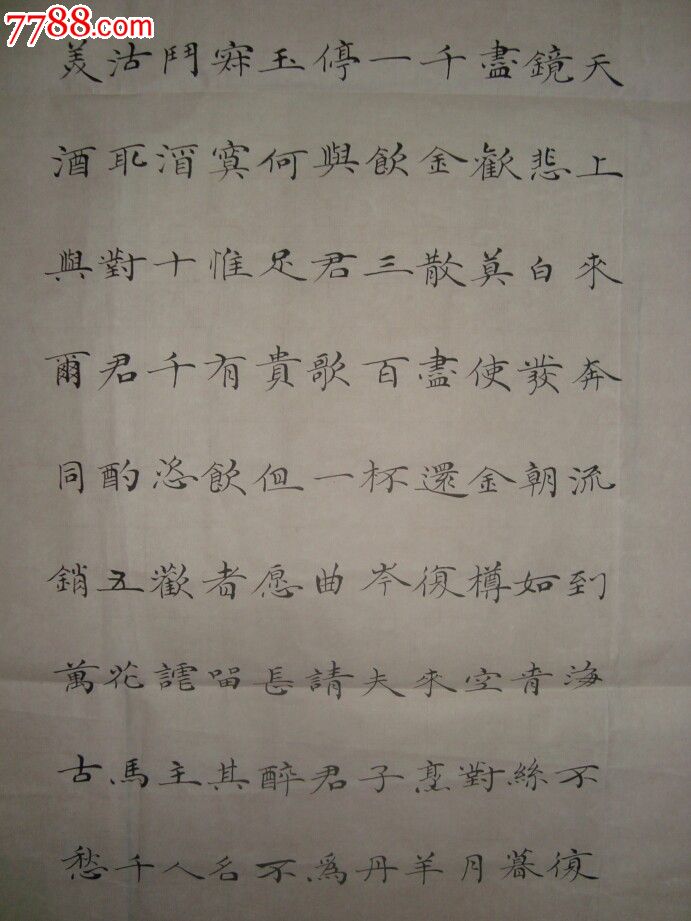 天上來奔流到海不復
鏡悲白發朝如青絲暮
盡歡莫使金樽空對月
千金散盡還復來烹羊
一飲三百杯岑夫子丹
停與君歌一曲請君爲
玉何足貴但愿長醉不
寂寞惟有飲者留其名
鬥酒十千恣歡謔主人
沽取對君酌五花馬千
美酒與爾同銷萬古愁
7788.com